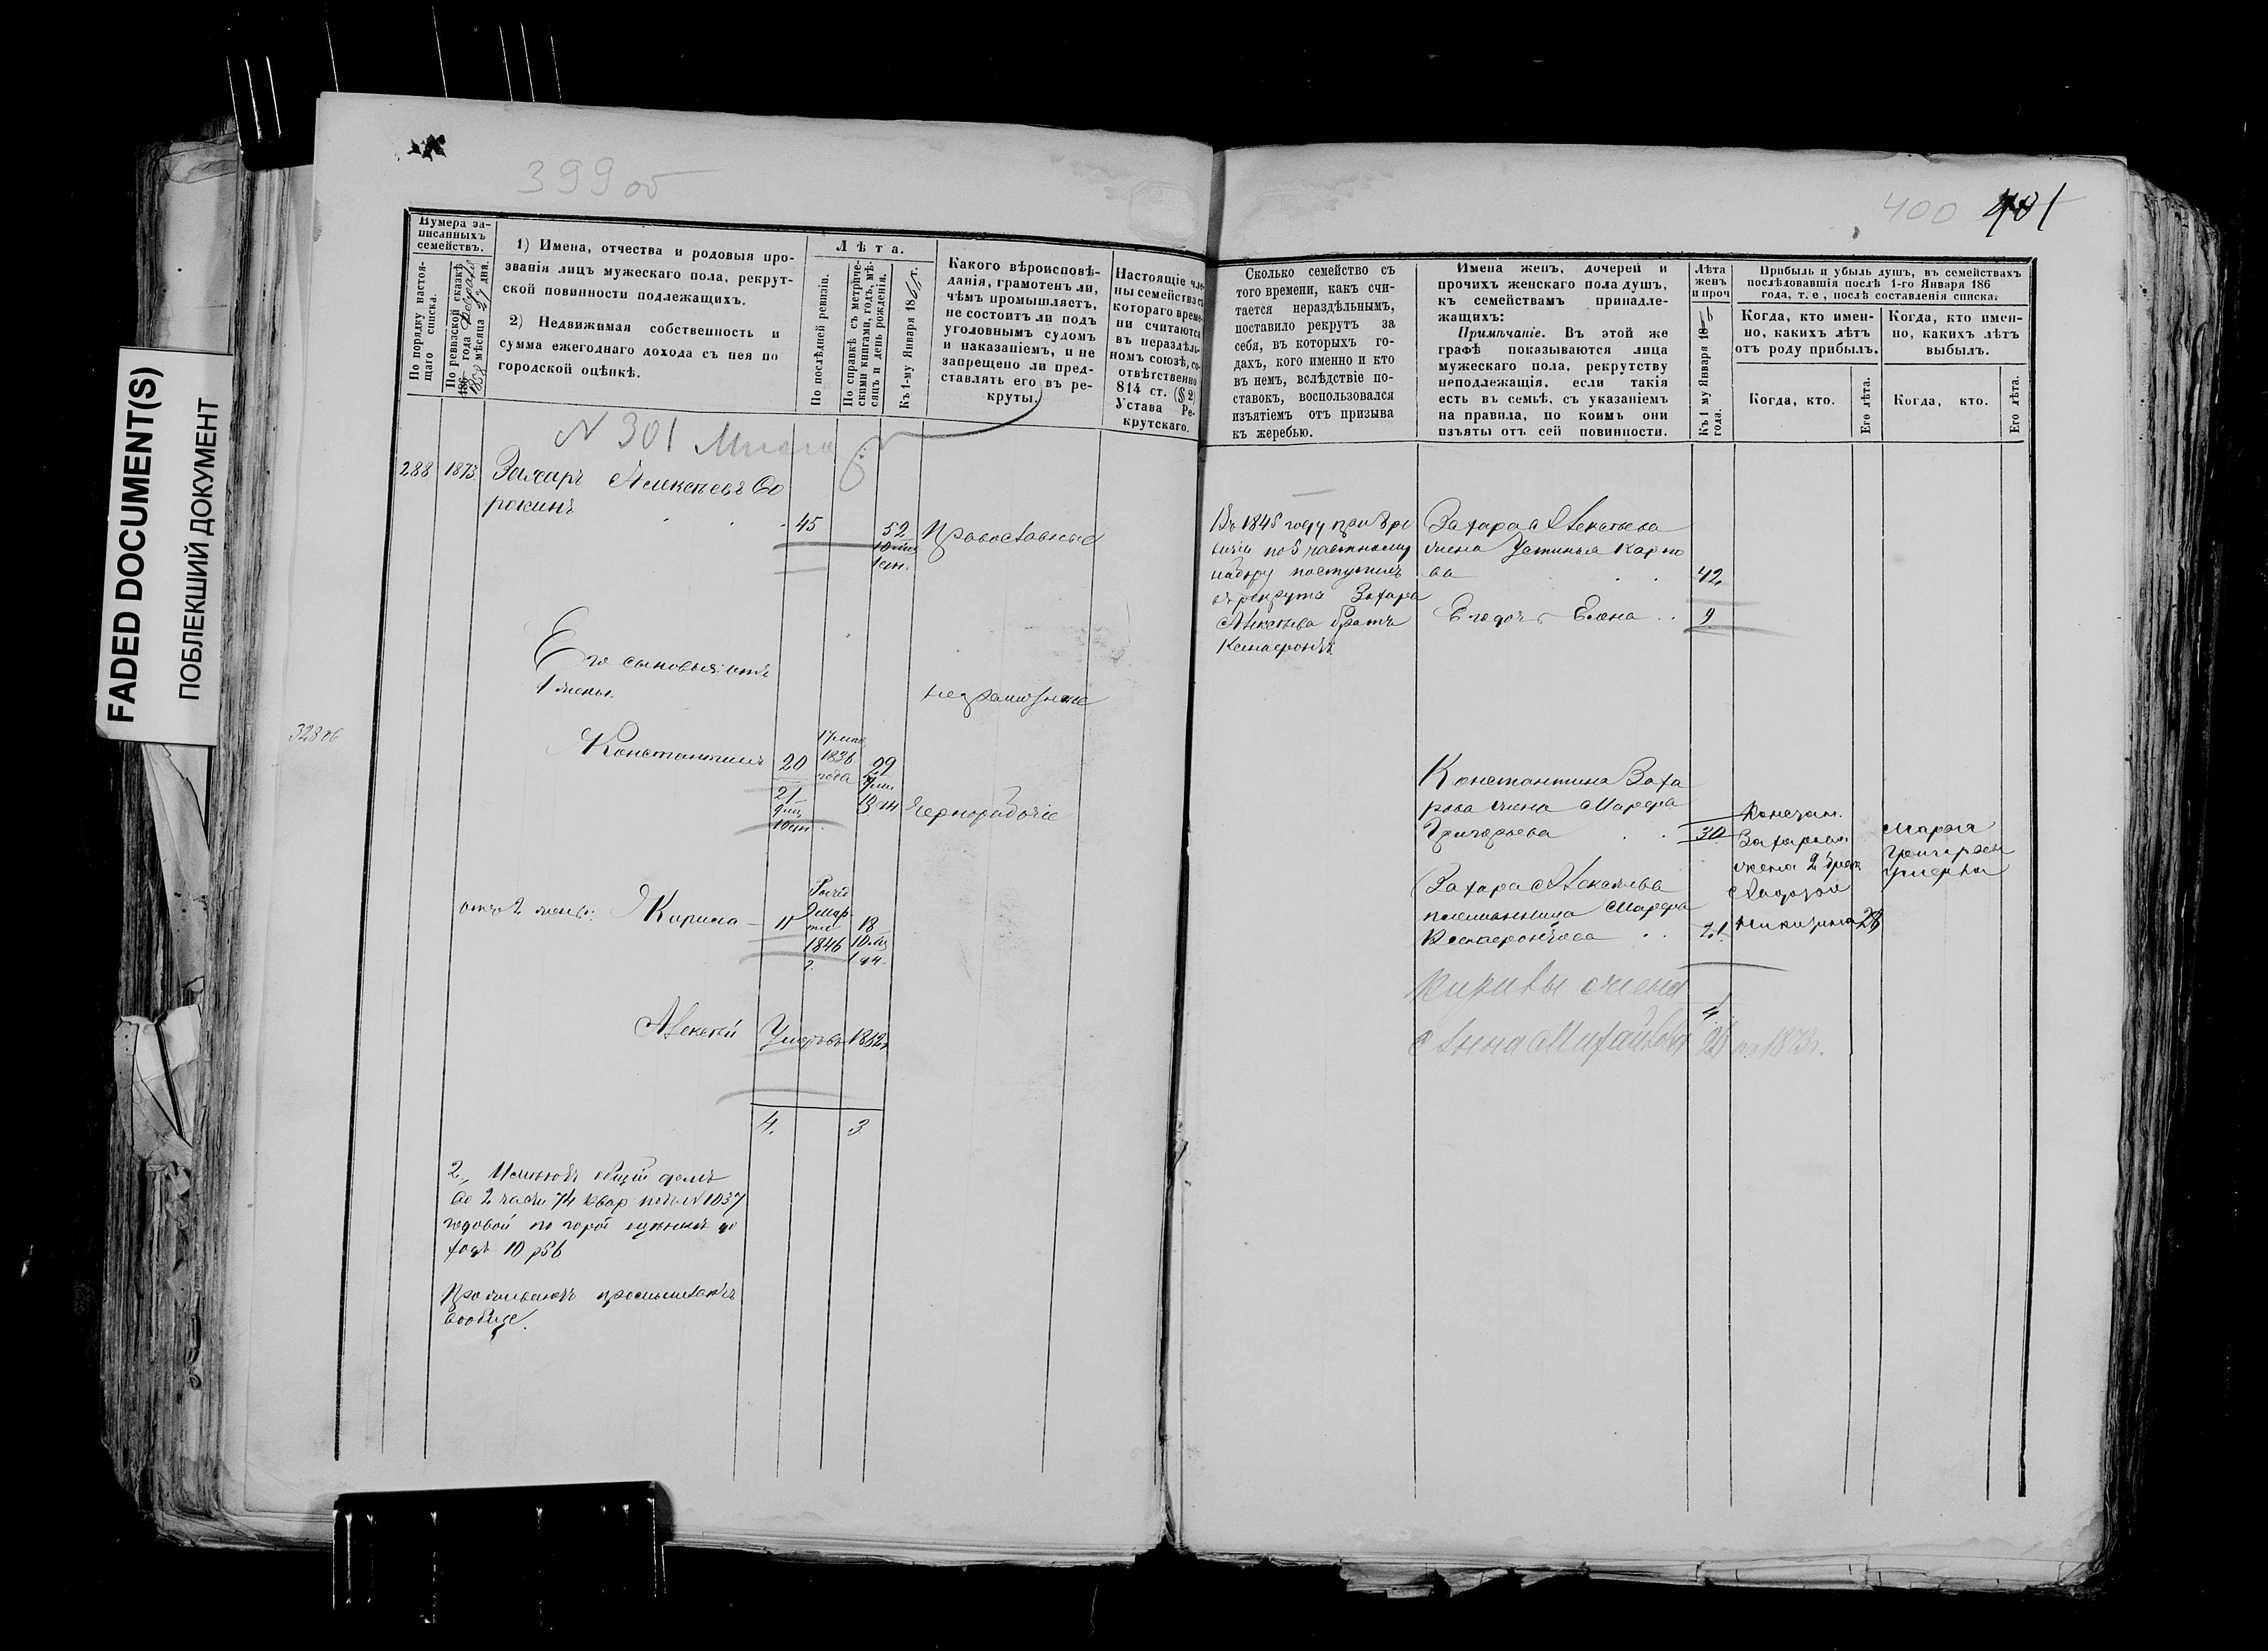 FADED DOCUMENT(S)
ПОБЛЕКШИЙ ДОКУМЕНТ
399 об
Нумера за-
писанныхъ
семействъ.
По порядку настоя-
щаго списка.
По ревизской сказкѣ
186 года
1858 мѣсяца 27 дня.
1) Имена, отчества и родовыя про-
званія лицъ мужескаго пола, рекрут-
ской повинности подлежащихъ.
2) Недвижимая собственность и
сумма ежегоднаго дохода съ нея по
городской оцѣнкѣ.
Лѣта.
По послѣдней ревизіи.
По справкѣ съ метриче-
скими книгами, годъ, мѣ-
сяцъ и день рожденія.
Къ 1-му Января 1865 г.
Какого вѣроисповѣ-
данія, грамотенъ ли,
чѣмъ промышляетъ,
не состоитъ ли подъ
уголовнымъ судомъ
и наказаніемъ, и не
запрещено ли пред-
ставлять его въ ре-
круты.
Настоящіе чле-
ны семейства съ
котораго време-
ни считаются
въ нераздѣль-
номъ союзѣ, со-
отвѣтственно
814 ст. (§ 2)
Устава Ре-
крутскаго.
N 301
288 1873 Захаръ Алексѣевъ Со
рокинъ 45 52 Православные
10 мѣс
Его сыновья: отъ
1 жены. неграмотные
328 об
Константинъ 20 17 мая 1836 года 29
21
9 мц Чернорабочіе
отъ 2 жены: Кирила 11 18
1846 10 мц
Алексѣй Умеръ въ 1862 г
4. 3
2., Имѣютъ общій домъ
во 2 части 74 квар подъ N 1037
годовой по город оцѣнкѣ до
ходъ 10 руб
Проживаютъ промышляютъ
вообще.
400 401
Сколько семейство съ
того времени, какъ счи-
тается нераздѣльнымъ,
поставило рекрутъ за
себя, въ которыхъ го-
дахъ, кого именно и кто
въ немъ, вслѣдствіе по-
ставокъ, воспользовался
изъятіемъ отъ призыва
къ жеребью.
Имена женъ, дочерей и
прочихъ женскаго пола душъ,
къ семействамъ принадле-
жащихъ:
Примѣчаніе. Въ этой же
графѣ показываются лица
мужескаго пола, рекрутству
неподлежащія, если такія
есть въ семьѣ, съ указаніемъ
на правила, по коимъ они
изъяты отъ сей повинности.
Лѣта
женъ
и проч
Къ 1 му Января 186
года.
Прибыль и убыль душъ, въ семействахъ
послѣдовавшія послѣ 1-го Января 186
года, т. е, послѣ составленія списка.
Когда, кто имен-
но, какихъ лѣтъ
отъ роду прибылъ.
Когда, кто имен-
но, какихъ лѣтъ
выбылъ.
Когда, кто.
Его лѣта.
Когда, кто.
Его лѣта.
Въ 1845 году
по 5 частному
набору поступилъ
въ рекруты Захара
Алексѣева братъ
Ксенофонтъ.
Захара Алексѣева
жена Устинья Карпо
ва 42
Его дочь Елена 9
Константина Заха
рова жена Марфа
Григорьева 30
Захара Алексѣева
племянница Марфа
Ксенофонтова 21
Кирилы жена
Анна Михайлова 26 по 1873 г.
Констан.
Захарова
жена 2 брака
Никитина 28
Марфа
Григорьева
умерла